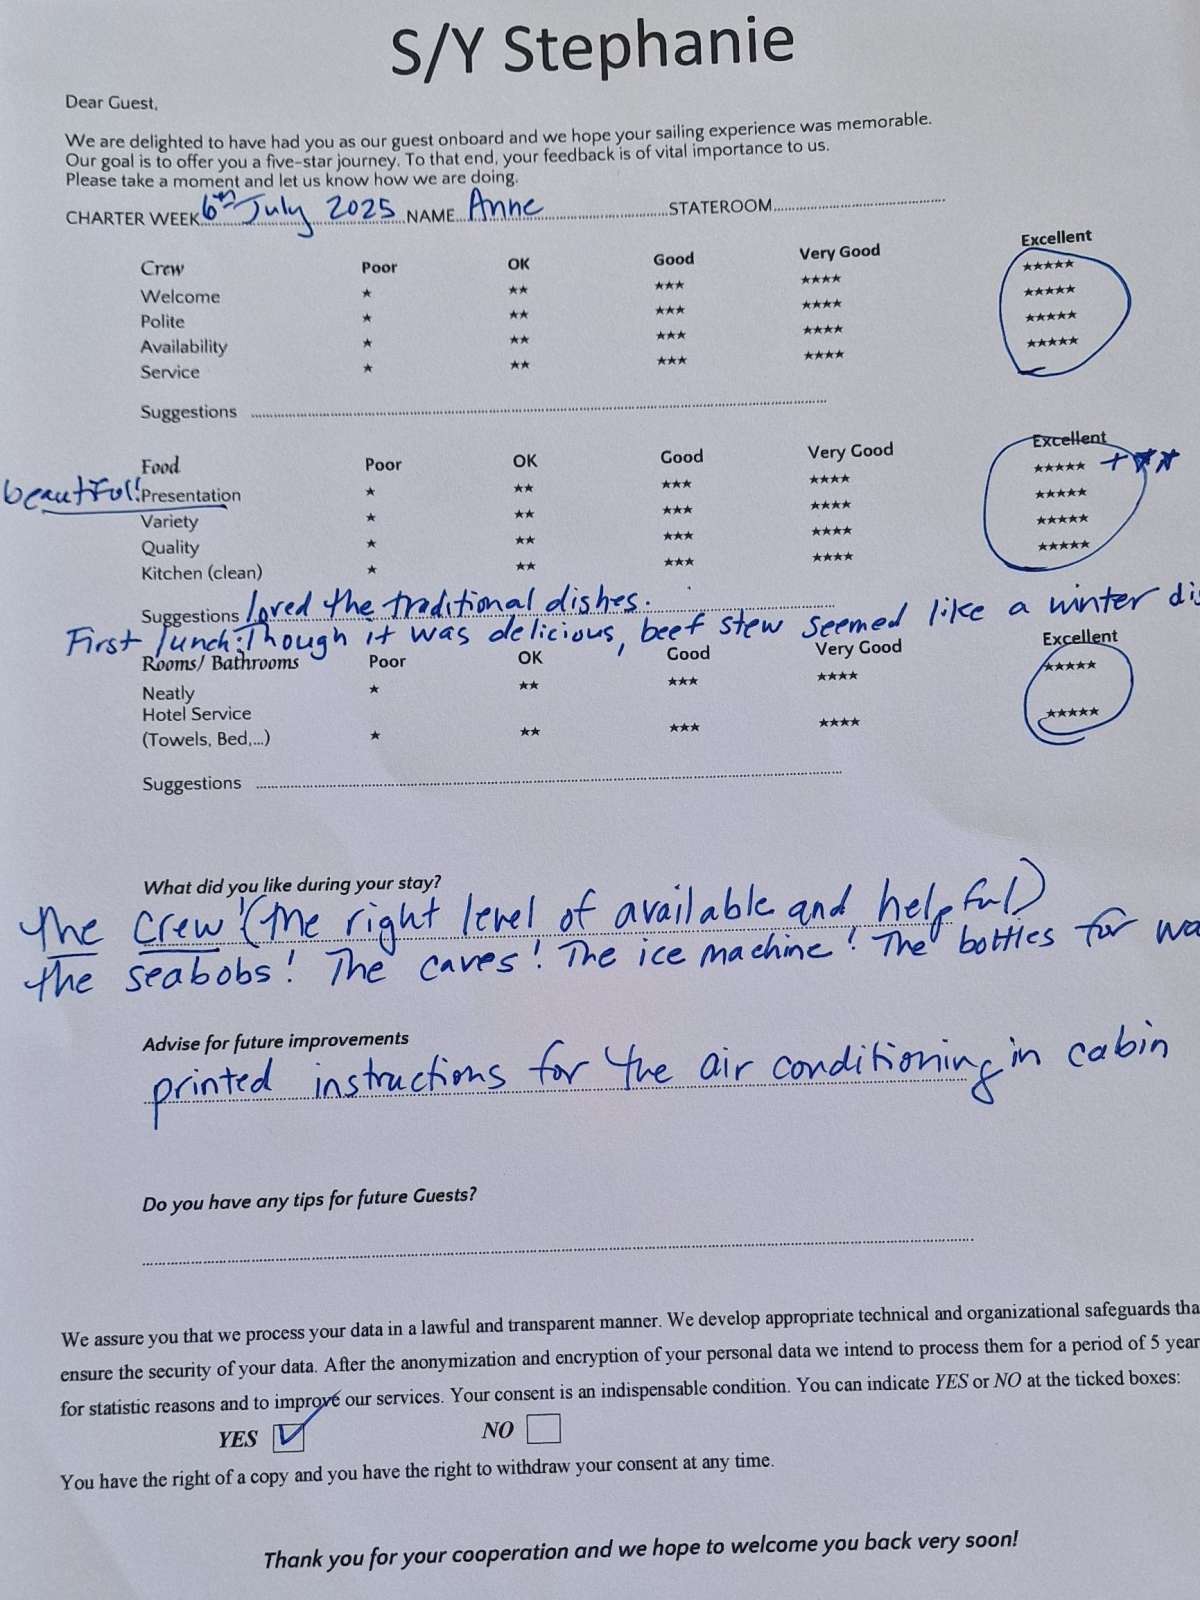 S/Y Stephanie
Dear Guest,
We are delighted to have had you as our guest onboard and we hope your sailing experience was memorable.
Our goal is to offer you a five-star journey. To that end, your feedback is of vital importance to us.
Please take a moment and let us know how we are doing.
CHARTER WEEK 6th July 2025 NAME Anne STATEROOM
Crew Poor OK Good Very Good Excellent
Welcome ★ ★★ ★★★ ★★★★ ★★★★★
Polite ★ ★★ ★★★ ★★★★ ★★★★★
Availability ★ ★★ ★★★ ★★★★ ★★★★★
Service ★ ★★ ★★★ ★★★★ ★★★★★
Suggestions
Food Poor OK Good Very Good Excellent
beautiful! Presentation ★ ★★ ★★★ ★★★★ ★★★★★ + ★★
Variety ★ ★★ ★★★ ★★★★ ★★★★★
Quality ★ ★★ ★★★ ★★★★ ★★★★★
Kitchen (clean) ★ ★★ ★★★ ★★★★ ★★★★★
Suggestions loved the traditional dishes.
First lunch: Though it was delicious, beef stew seemed like a winter dis
Rooms/ Bathrooms Poor OK Good Very Good Excellent
Neatly ★ ★★ ★★★ ★★★★ ★★★★★
Hotel Service
(Towels, Bed,...) ★ ★★ ★★★ ★★★★ ★★★★★
Suggestions
What did you like during your stay?
The crew! (the right level of available and helpful)
the seabobs! The caves! The ice machine! The bottles for wa
Advise for future improvements
printed instructions for the air conditioning in cabin
Do you have any tips for future Guests?
We assure you that we process your data in a lawful and transparent manner. We develop appropriate technical and organizational safeguards tha
ensure the security of your data. After the anonymization and encryption of your personal data we intend to process them for a period of 5 year
for statistic reasons and to improve our services. Your consent is an indispensable condition. You can indicate YES or NO at the ticked boxes:
YES ☑ NO ☐
You have the right of a copy and you have the right to withdraw your consent at any time.
Thank you for your cooperation and we hope to welcome you back very soon!